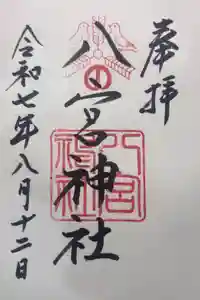 奉拝
八宮神社
令和七年八月十二日